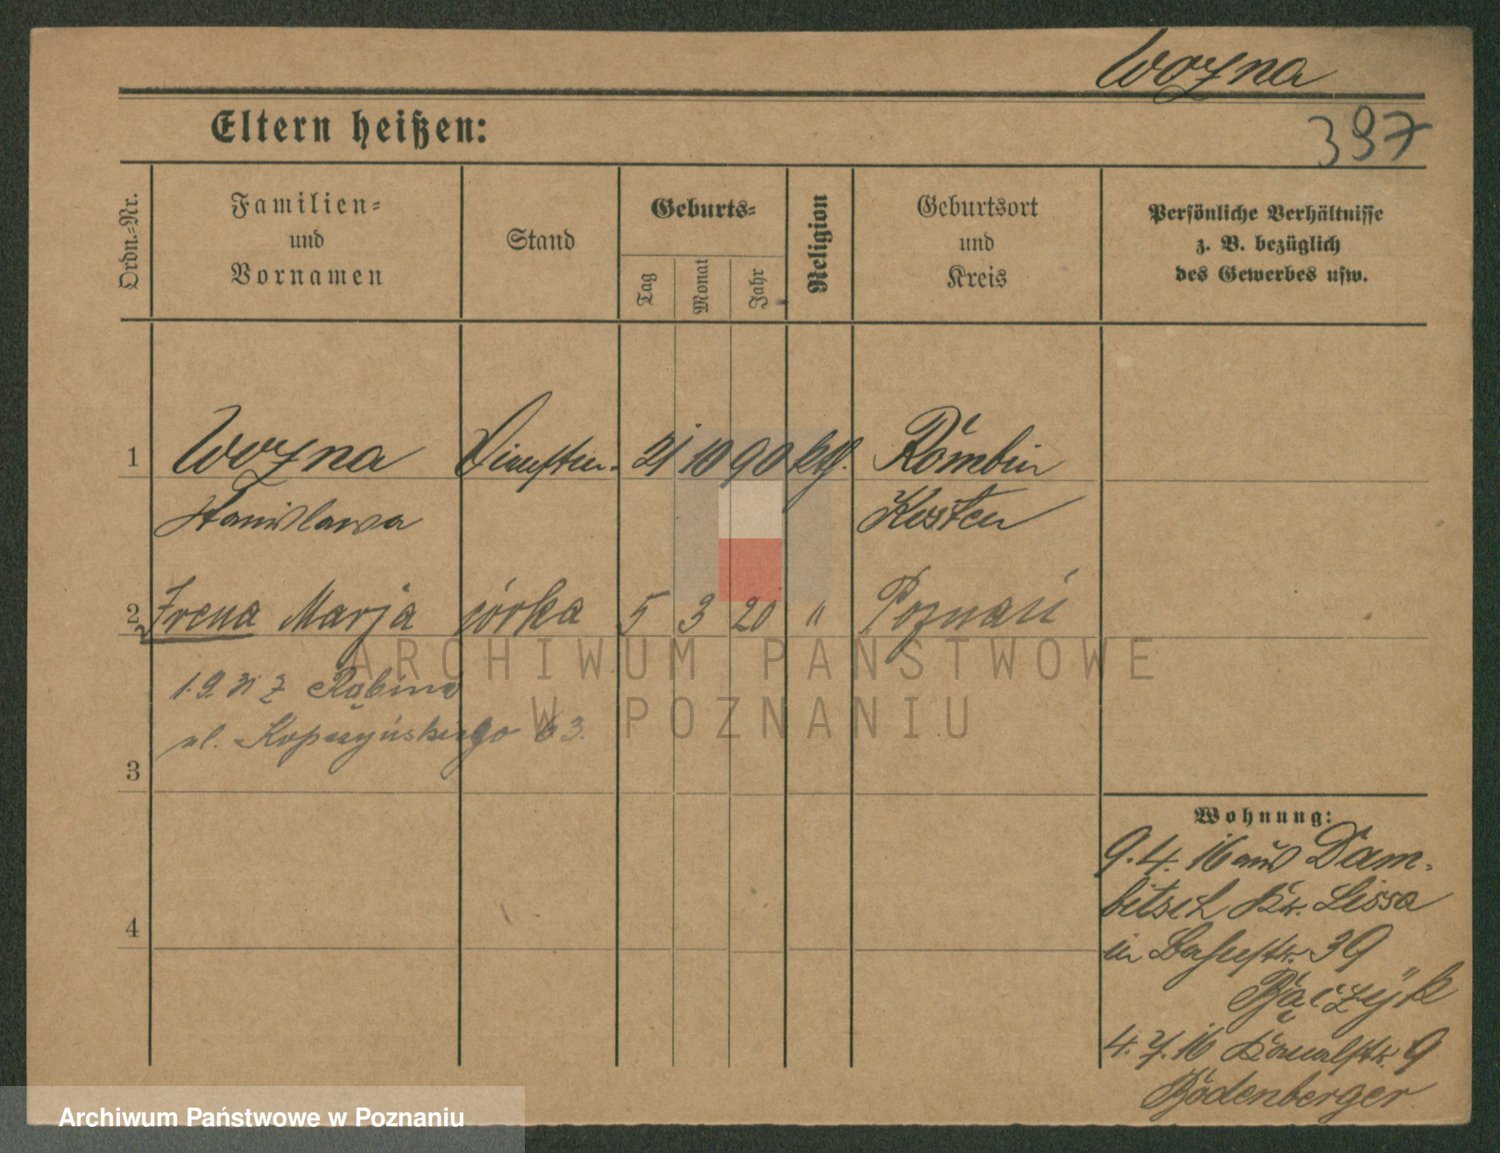 Wozna
397
Eltern heißen:
Ordn.-Nr.
Familien-
und
Vornamen
Stand
Geburts-
Tag
Monat
Jahr
Religion
Geburtsort
und
Kreis
Persönliche Verhältnisse
z. B. bezüglich
des Gewerbes usw.
1 Wozna 21 10 90 kth. Rombin
Stanislawa Kosten
2 Irena Marja córka 5 3 20 " Poznań
1.9.31 z Rąbina
ul. Kopczyńskiego 63.
3
4
Wohnung:
9.4.16 aus Dam-
bitsch Kr. Lissa
in 39
Bączyk
4.7.16 Kanalstr. 9
Bodenberger
ARCHIWUM PAŃSTWOWE
W POZNANIU
Archiwum Państwowe w Poznaniu